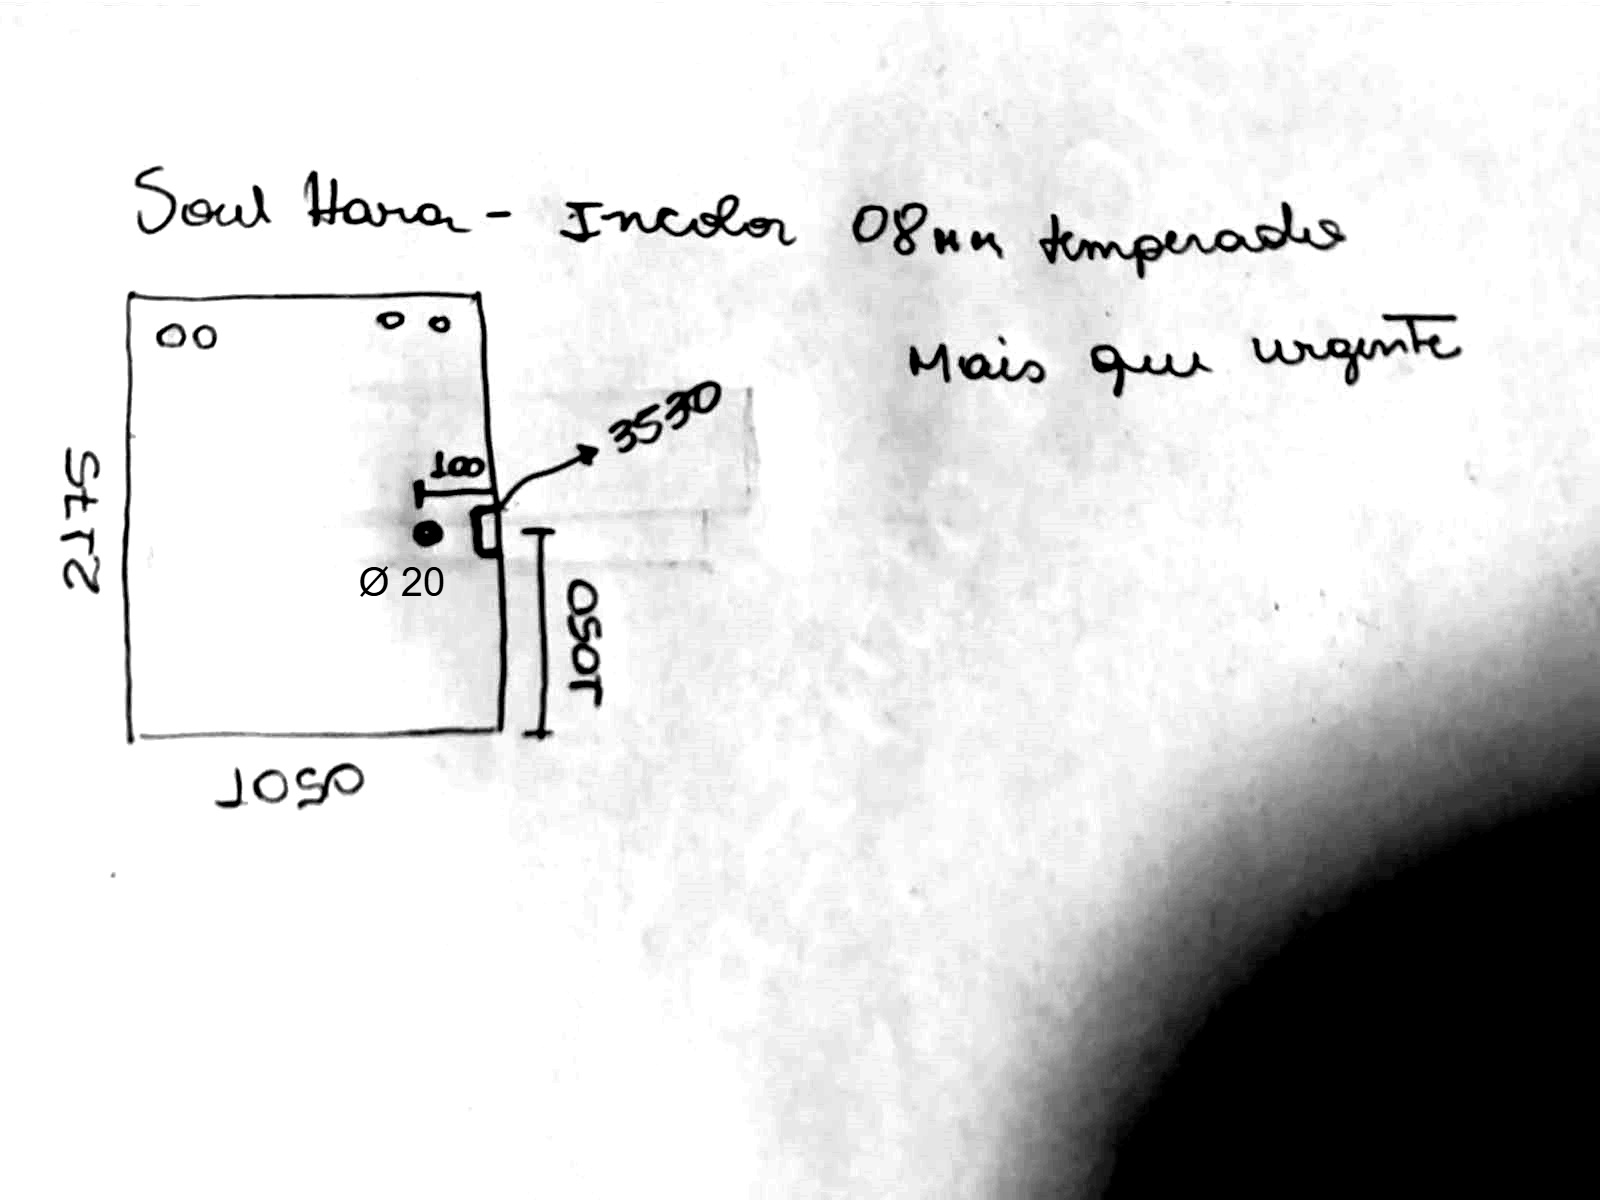 Soul Hara - Incolor 08mm temperado
Mais que urgente
3530
100
2175
Ø 20
1050
1050